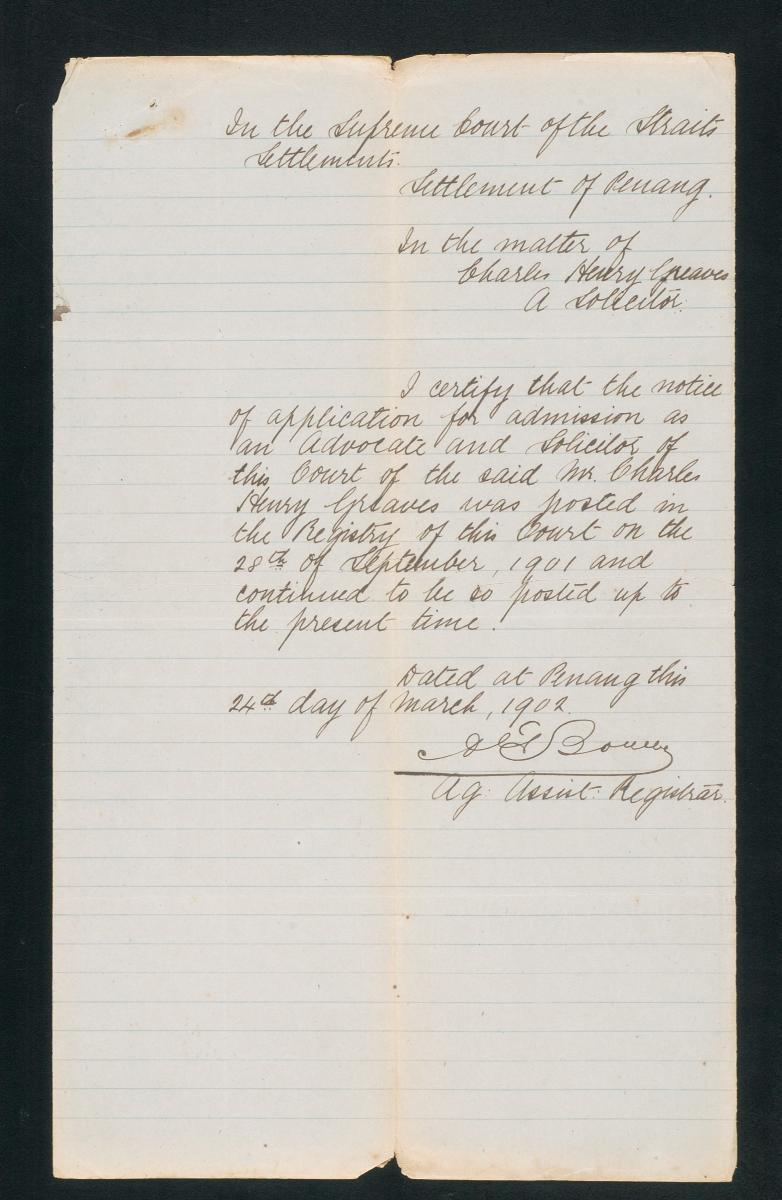 In the Supreme Court of the Straits
Settlements.
Settlement of Penang.
In the matter of
Charles Henry Greaves
A Solicitor.
I certify that the notice
of application for admission as
an Advocate and Solicitor of
this Court of the said Mr. Charles
Henry Greaves was posted in
the Registry of this Court on the
28th of September, 1901 and
continued to be so posted up to
the present time.
Dated at Penang this
24th day of March, 1902.
Ag: Assist: Registrar.